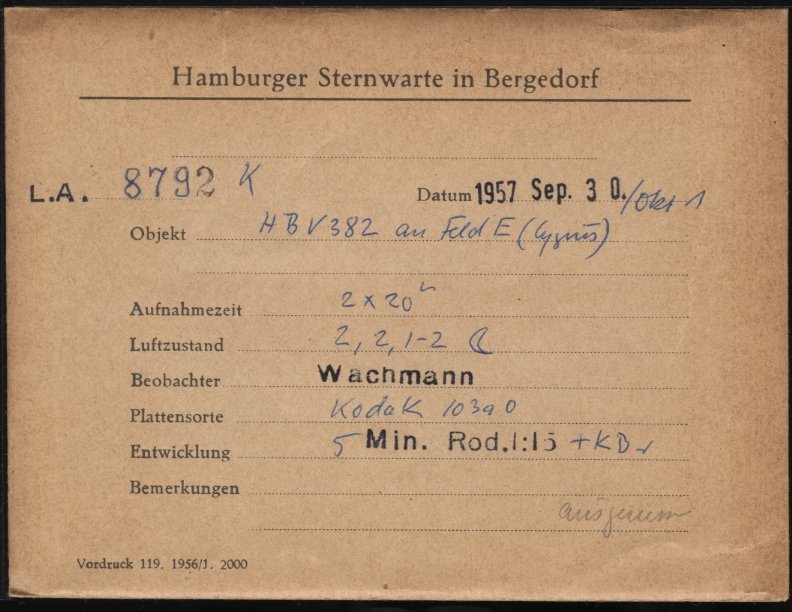 Hamburger Sternwarte in Bergedorf
L.A. 8792 K
Datum 1957 Sep. 30./Okt 1
Objekt HBV382 an Feld E (Cygnus)
Aufnahmezeit 2 x 20 m
Luftzustand 2, 2, 1-2 ☾
Beobachter Wachmann
Plattensorte Kodak 103a0
Entwicklung 5 Min. Rod.1:15 + KBr
Bemerkungen
Vordruck 119. 1956/1. 2000